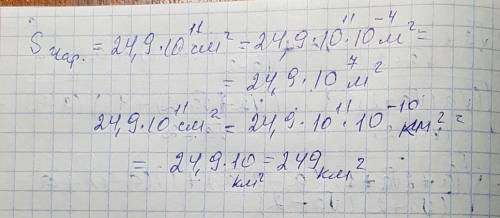 S нар. = 24,9·10¹¹ см² = 24,9·10¹¹·10⁻⁴ м² =
= 24,9·10⁷ м²
24,9·10¹¹ см² = 24,9·10¹¹·10⁻¹⁰ км² =
= 24,9·10 км² = 249 км²